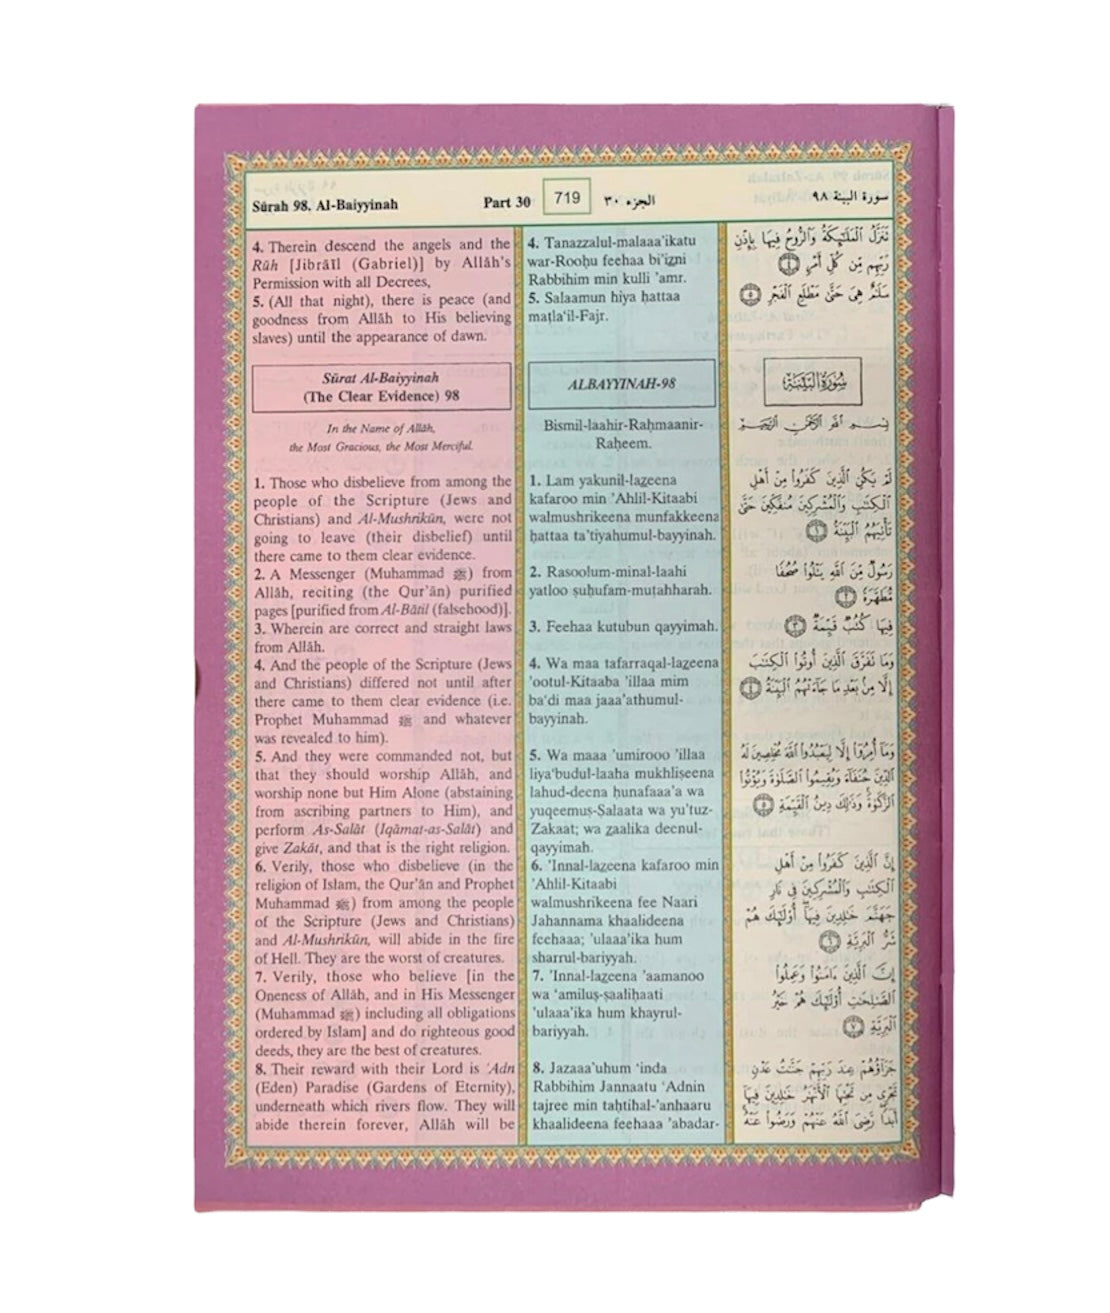 Sūrah 98. Al-Baiyyinah
Part 30
719
الجزء ٣٠
سورة البينة ٩٨
4. Therein descend the angels and the
Rūh [Jibrāīl (Gabriel)] by Allāh's
Permission with all Decrees,
5. (All that night), there is peace (and
goodness from Allāh to His believing
slaves) until the appearance of dawn.
Sūrat Al-Baiyyinah
(The Clear Evidence) 98
In the Name of Allāh,
the Most Gracious, the Most Merciful.
1. Those who disbelieve from among the
people of the Scripture (Jews and
Christians) and Al-Mushrikūn, were not
going to leave (their disbelief) until
there came to them clear evidence.
2. A Messenger (Muhammad ﷺ) from
Allāh, reciting (the Qur'ān) purified
pages [purified from Al-Bātil (falsehood)].
3. Wherein are correct and straight laws
from Allāh.
4. And the people of the Scripture (Jews
and Christians) differed not until after
there came to them clear evidence (i.e.
Prophet Muhammad ﷺ and whatever
was revealed to him).
5. And they were commanded not, but
that they should worship Allāh, and
worship none but Him Alone (abstaining
from ascribing partners to Him), and
perform As-Salāt (Iqāmat-as-Salāt) and
give Zakāt, and that is the right religion.
6. Verily, those who disbelieve (in the
religion of Islam, the Qur'ān and Prophet
Muhammad ﷺ) from among the people
of the Scripture (Jews and Christians)
and Al-Mushrikūn, will abide in the fire
of Hell. They are the worst of creatures.
7. Verily, those who believe [in the
Oneness of Allāh, and in His Messenger
(Muhammad ﷺ) including all obligations
ordered by Islam] and do righteous good
deeds, they are the best of creatures.
8. Their reward with their Lord is 'Adn
(Eden) Paradise (Gardens of Eternity),
underneath which rivers flow. They will
abide therein forever, Allāh will be
4. Tanazzalul-malaaa'ikatu
war-Rooḥu feehaa bi'iẓni
Rabbihim min kulli 'amr.
5. Salaamun hiya ḥattaa
maṭla‘il-Fajr.
ALBAYYINAH-98
Bismil-laahir-Raḥmaanir-
Raḥeem.
1. Lam yakunil-laẓeena
kafaroo min 'Ahlil-Kitaabi
walmushrikeena munfakkeena
ḥattaa ta'tiyahumul-bayyinah.
2. Rasoolum-minal-laahi
yatloo ṣuḥufam-muṭahharah.
3. Feehaa kutubun qayyimah.
4. Wa maa tafarraqal-laẓeena
'ootul-Kitaaba 'illaa mim
ba‘di maa jaaa'athumul-
bayyinah.
5. Wa maaa 'umirooo 'illaa
liya‘budul-laaha mukhliṣeena
lahud-deena ḥunafaaa'a wa
yuqeemuṣ-Ṣalaata wa yu'tuz-
Zakaat; wa ẓaalika deenul-
qayyimah.
6. 'Innal-laẓeena kafaroo min
'Ahlil-Kitaabi
walmushrikeena fee Naari
Jahannama khaalideena
feehaaa; 'ulaaa'ika hum
sharrul-bariyyah.
7. 'Innal-laẓeena 'aamanoo
wa ‘amiluṣ-ṣaaliḥaati
'ulaaa'ika hum khayrul-
bariyyah.
8. Jazaaa'uhum ‘inda
Rabbihim Jannaatu ‘Adnin
tajree min taḥtihal-'anhaaru
khaalideena feehaaa 'abadar-
تَنَزَّلُ الْمَلَٰٓئِكَةُ وَالرُّوحُ فِيهَا بِإِذْنِ
رَبِّهِم مِّن كُلِّ أَمْرٍ ٤
سَلَٰمٌ هِىَ حَتَّىٰ مَطْلَعِ الْفَجْرِ ٥
سُورَةُ الْبَيِّنَةِ
بِسْمِ اللَّهِ الرَّحْمَٰنِ الرَّحِيمِ
لَمْ يَكُنِ الَّذِينَ كَفَرُوا مِنْ أَهْلِ
الْكِتَٰبِ وَالْمُشْرِكِينَ مُنفَكِّينَ حَتَّىٰ
تَأْتِيَهُمُ الْبَيِّنَةُ ١
رَسُولٌ مِّنَ اللَّهِ يَتْلُوا صُحُفًا
مُّطَهَّرَةً ٢
فِيهَا كُتُبٌ قَيِّمَةٌ ٣
وَمَا تَفَرَّقَ الَّذِينَ أُوتُوا الْكِتَٰبَ
إِلَّا مِنۢ بَعْدِ مَا جَآءَتْهُمُ الْبَيِّنَةُ ٤
وَمَآ أُمِرُوٓا إِلَّا لِيَعْبُدُوا اللَّهَ مُخْلِصِينَ لَهُ
الدِّينَ حُنَفَآءَ وَيُقِيمُوا الصَّلَوٰةَ وَيُؤْتُوا
الزَّكَوٰةَ وَذَٰلِكَ دِينُ الْقَيِّمَةِ ٥
إِنَّ الَّذِينَ كَفَرُوا مِنْ أَهْلِ
الْكِتَٰبِ وَالْمُشْرِكِينَ فِى نَارِ
جَهَنَّمَ خَٰلِدِينَ فِيهَآ أُو۟لَٰٓئِكَ هُمْ
شَرُّ الْبَرِيَّةِ ٦
إِنَّ الَّذِينَ ءَامَنُوا وَعَمِلُوا
الصَّٰلِحَٰتِ أُو۟لَٰٓئِكَ هُمْ خَيْرُ
الْبَرِيَّةِ ٧
جَزَآؤُهُمْ عِندَ رَبِّهِمْ جَنَّٰتُ عَدْنٍ
تَجْرِى مِن تَحْتِهَا الْأَنْهَٰرُ خَٰلِدِينَ فِيهَآ
أَبَدًا رَّضِىَ اللَّهُ عَنْهُمْ وَرَضُوا عَنْهُ